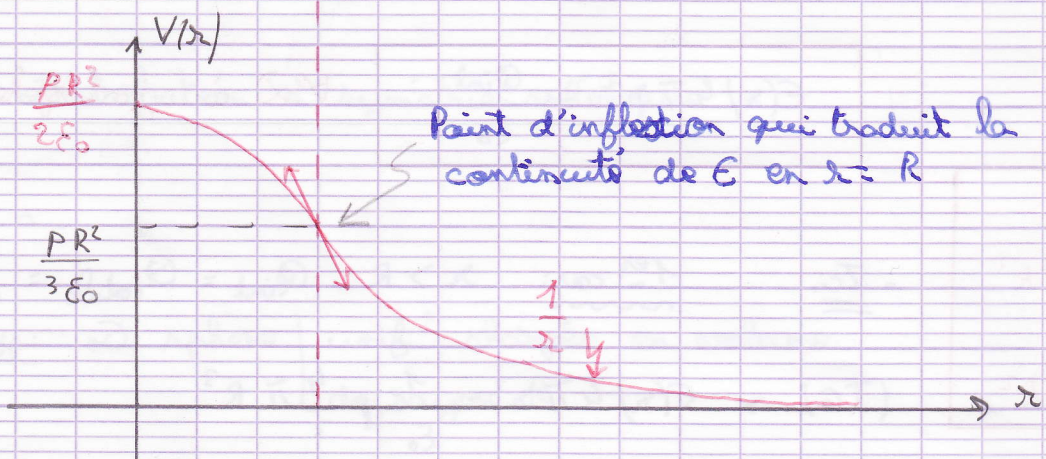 V(r)
ρR²
2ε₀
Point d'inflection qui traduit la
continuité de E en r = R
ρR²
3ε₀
1
r
r